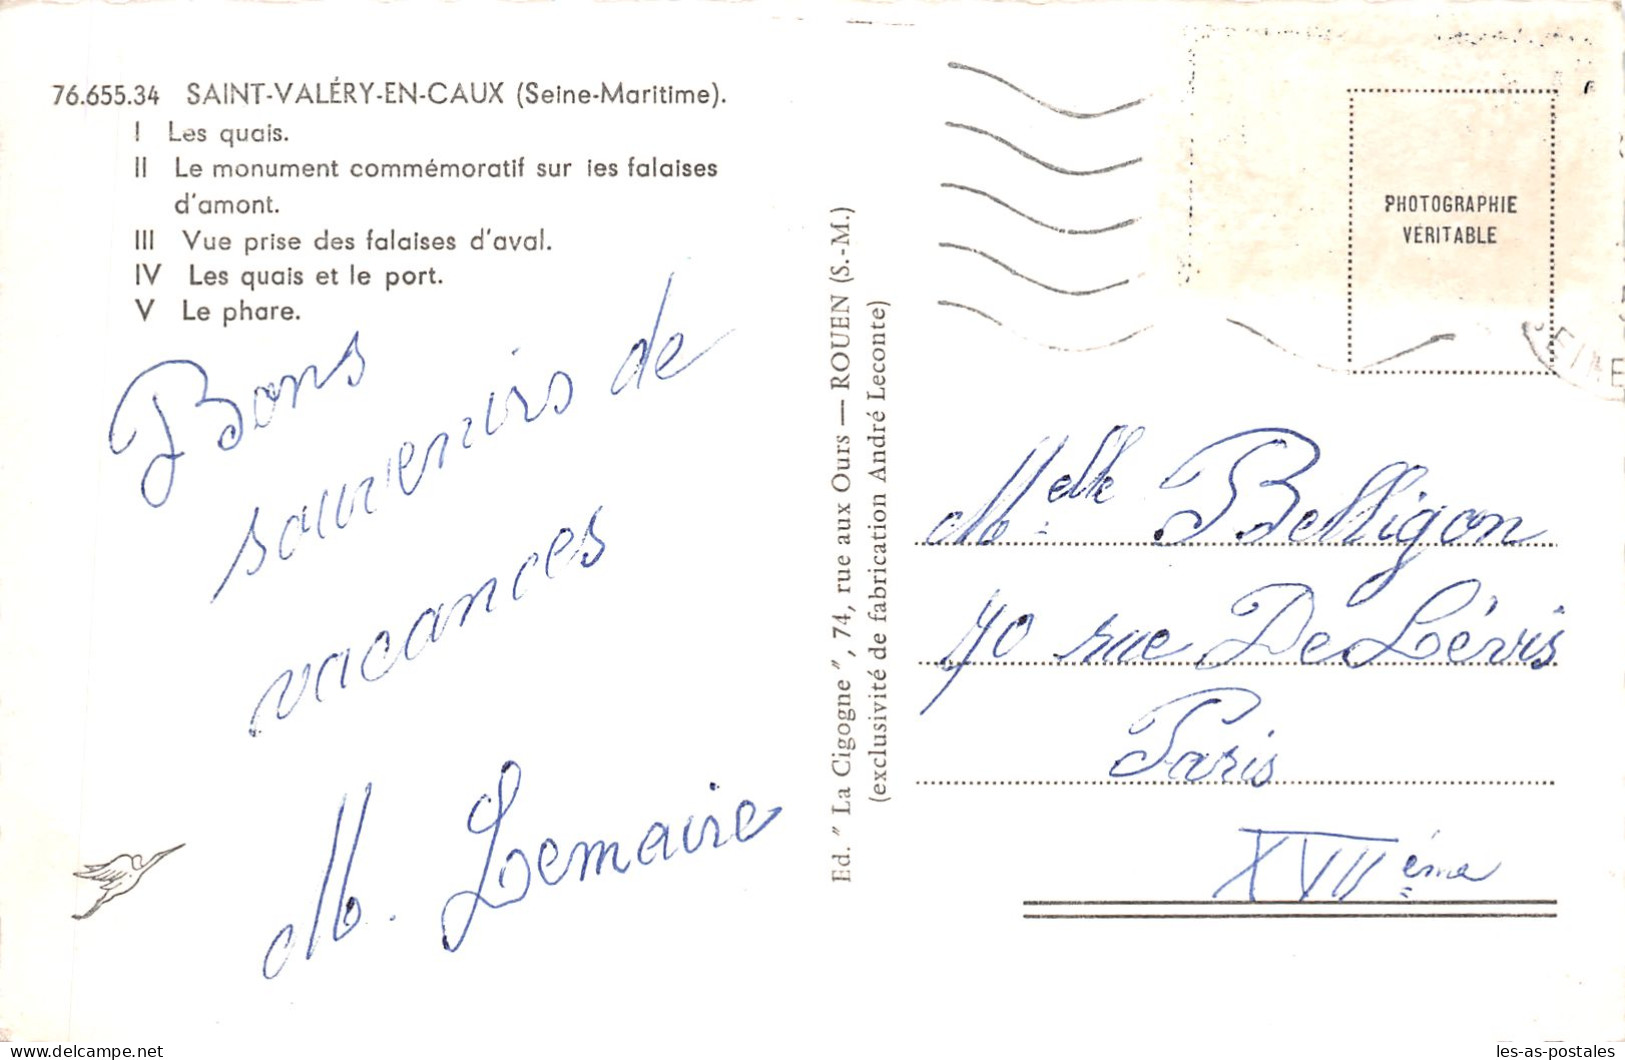 76.655.34 SAINT-VALÉRY-EN-CAUX (Seine-Maritime).
I Les quais.
II Le monument commémoratif sur les falaises
d'amont.
III Vue prise des falaises d'aval.
IV Les quais et le port.
V Le phare.
Bons
souvenirs de
vacances
M. Lemaire
Ed. "La Cigogne", 74, rue aux Ours — ROUEN (S.-M.)
(exclusivité de fabrication André Leconte)
PHOTOGRAPHIE
VÉRITABLE
Melle Belligon
70 rue De Lévis
Paris
XVIIème
delcampe.net
les-as-postales